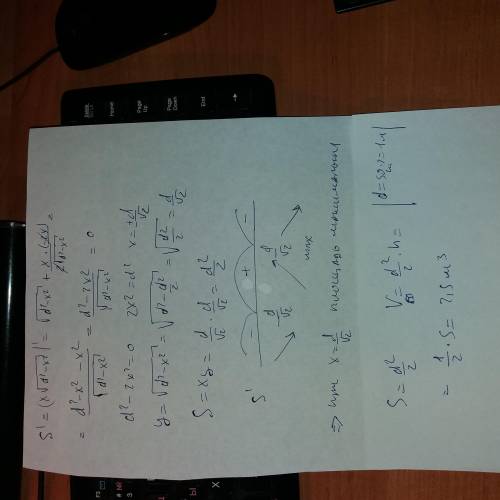 S' = (x√(d²-x²))' = √(d²-x²) + x·(-2x)/(2√(d²-x²)) =
= (d²-x²-x²)/√(d²-x²) = (d²-2x²)/√(d²-x²) = 0
d²-2x²=0 2x²=d² x=±d/√2
y=√(d²-x²)=√(d²-d²/2)=√(d²/2)=d/√2
S=xy=d/√2·d/√2=d²/2
- + -
S' -d/√2 d/√2
max
⇒ при x=d/√2 площадь максимальна
S=d²/2 V=d²/2·h=
=1/2·5=2,5 м³
Home
Page Up
Page Down
End